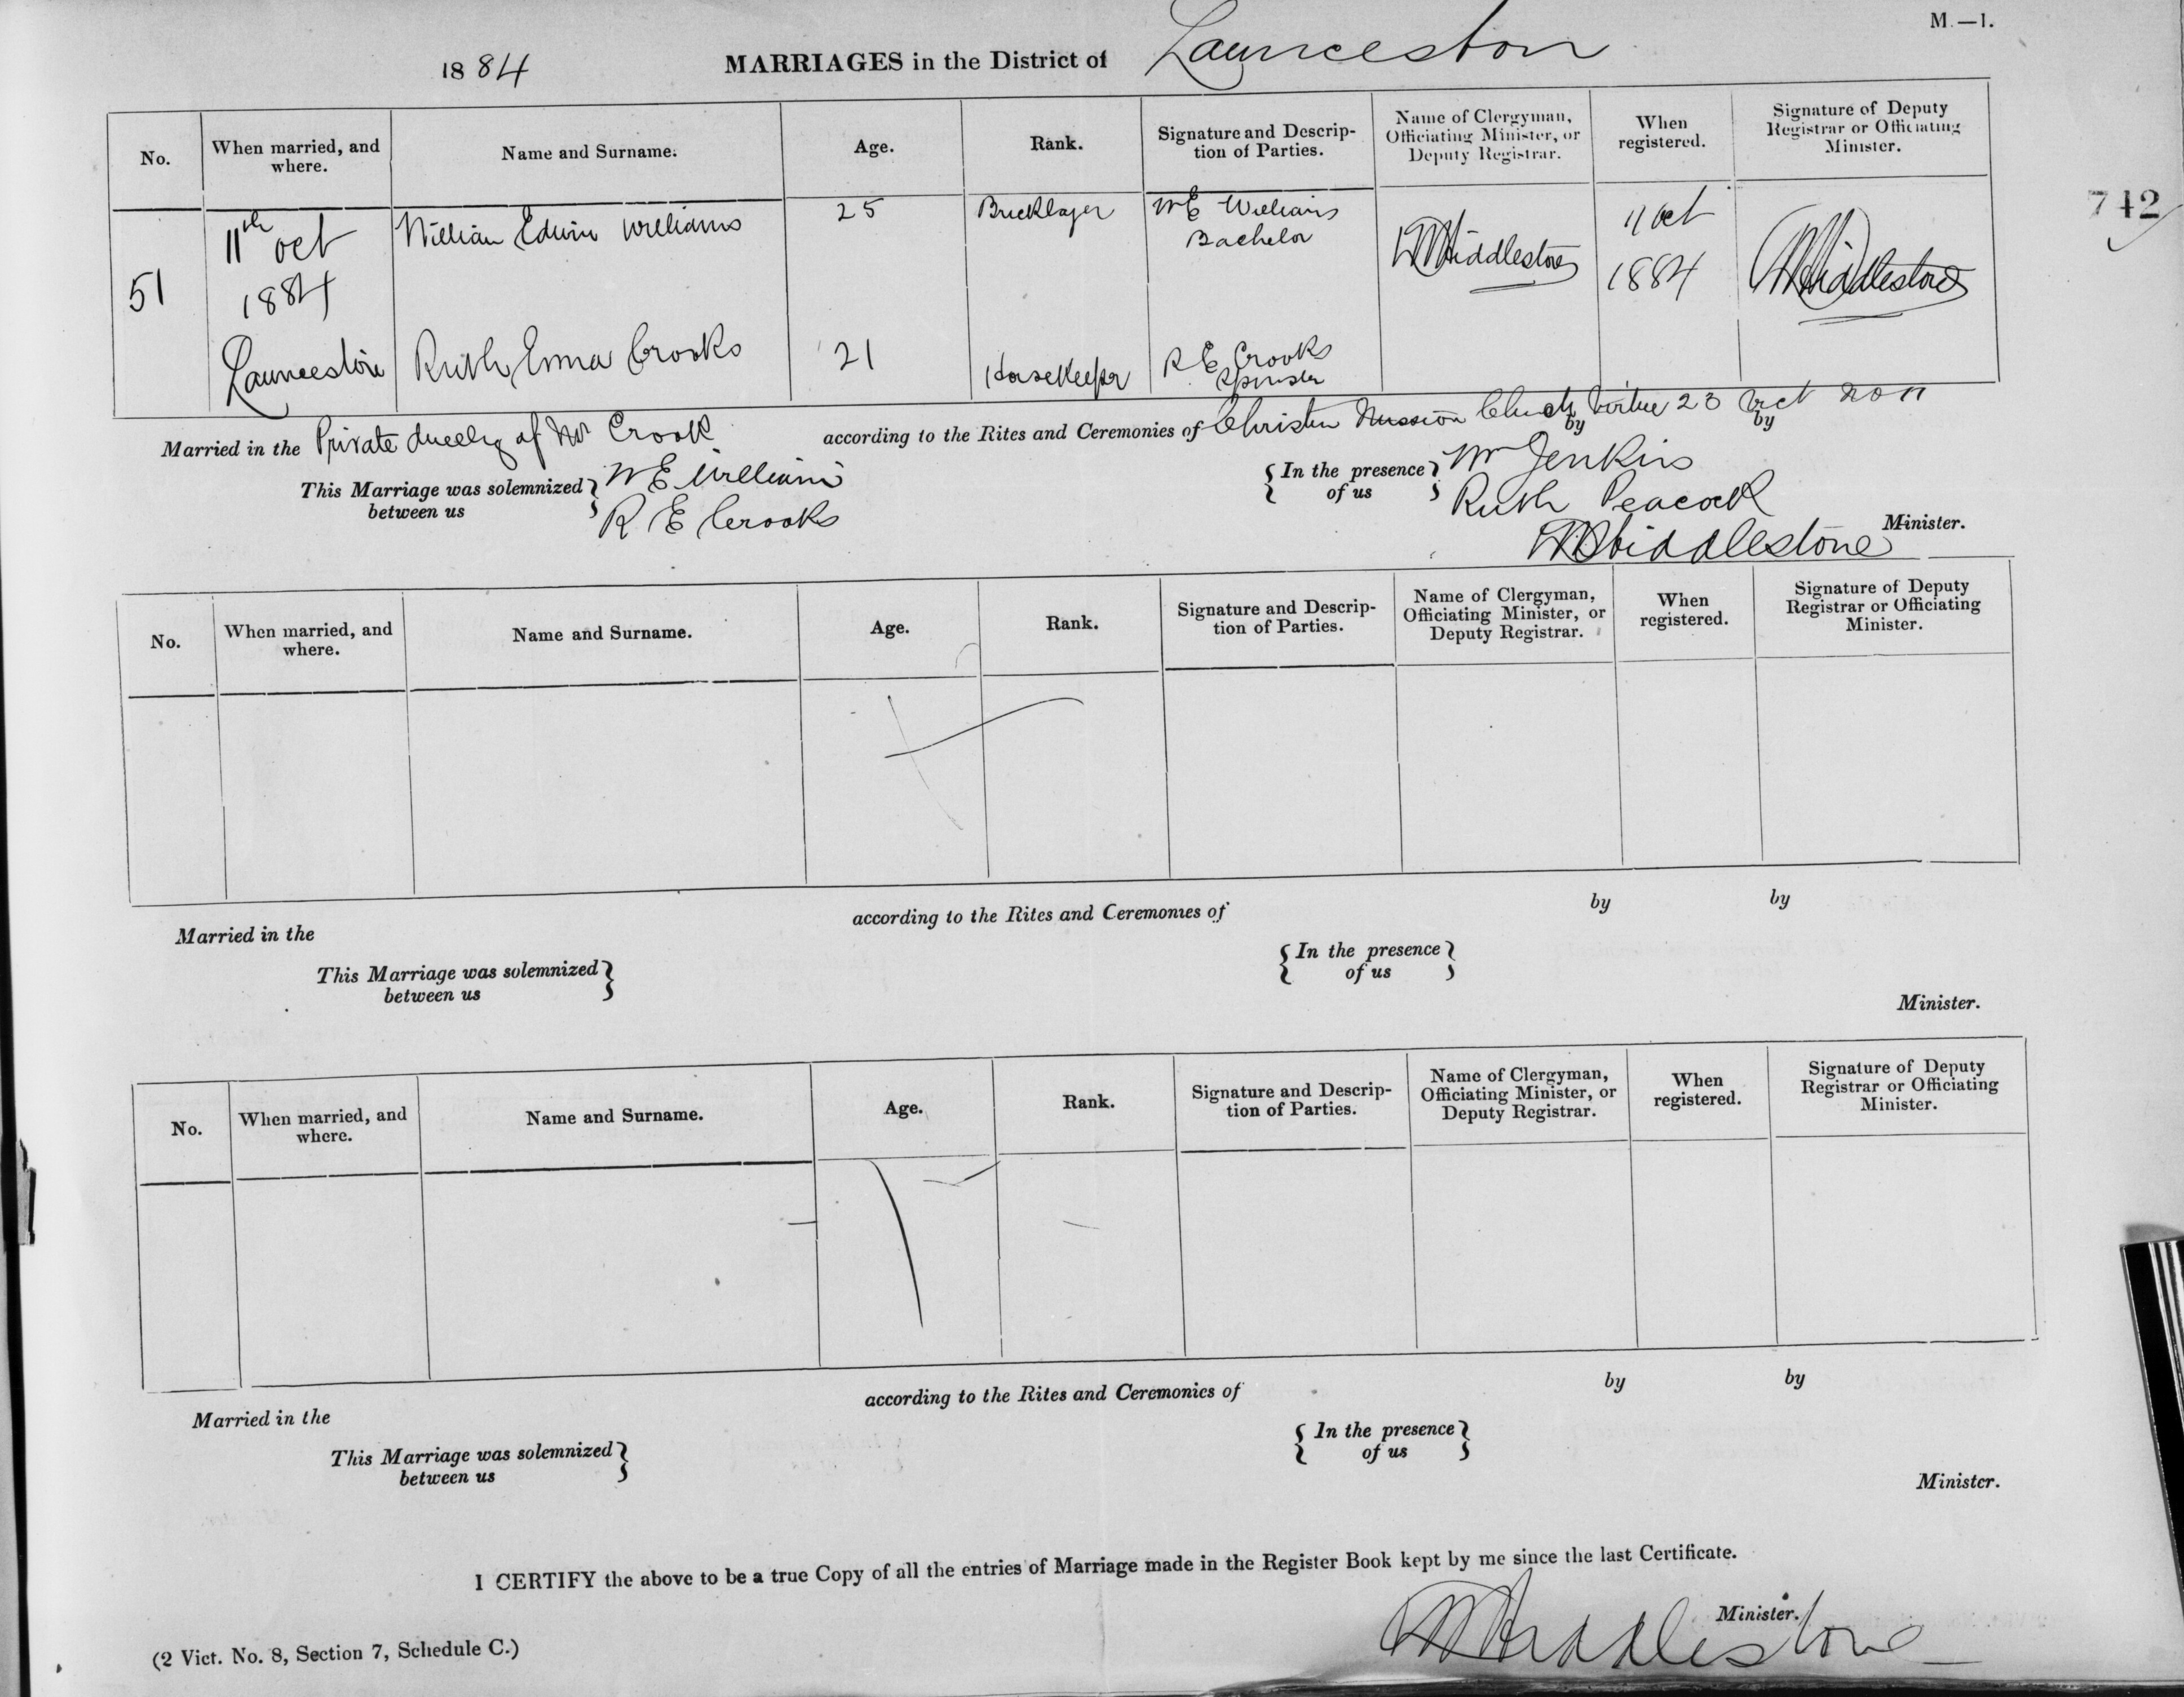 M.—1.
1884 MARRIAGES in the District of Launceston
742
No. When married, and where. Name and Surname. Age. Rank. Signature and Description of Parties. Name of Clergyman, Officiating Minister, or Deputy Registrar. When registered. Signature of Deputy Registrar or Officiating Minister.
51
11th oct
1884
Launceston
William Edwin Williams 25 Bricklayer
W E Williams
Bachelor
Ruth Emma Crooks 21 HouseKeeper
R E Crooks
Spinster
Middlestone
11 Oct
1884
Middlestone
Married in the Private dwellg of Mr Crook according to the Rites and Ceremonies of Christn Mission Church by Virtue 23 Vict by No 11
This Marriage was solemnized between us
W E Williams
R E Crooks
In the presence of us
Wm Jenkins
Ruth Peacock
Middlestone Minister.
No. When married, and where. Name and Surname. Age. Rank. Signature and Description of Parties. Name of Clergyman, Officiating Minister, or Deputy Registrar. When registered. Signature of Deputy Registrar or Officiating Minister.
Married in the according to the Rites and Ceremonies of by by
This Marriage was solemnized between us
In the presence of us
Minister.
No. When married, and where. Name and Surname. Age. Rank. Signature and Description of Parties. Name of Clergyman, Officiating Minister, or Deputy Registrar. When registered. Signature of Deputy Registrar or Officiating Minister.
Married in the according to the Rites and Ceremonies of by by
This Marriage was solemnized between us
In the presence of us
Minister.
I CERTIFY the above to be a true Copy of all the entries of Marriage made in the Register Book kept by me since the last Certificate.
Middlestone Minister.
(2 Vict. No. 8, Section 7, Schedule C.)